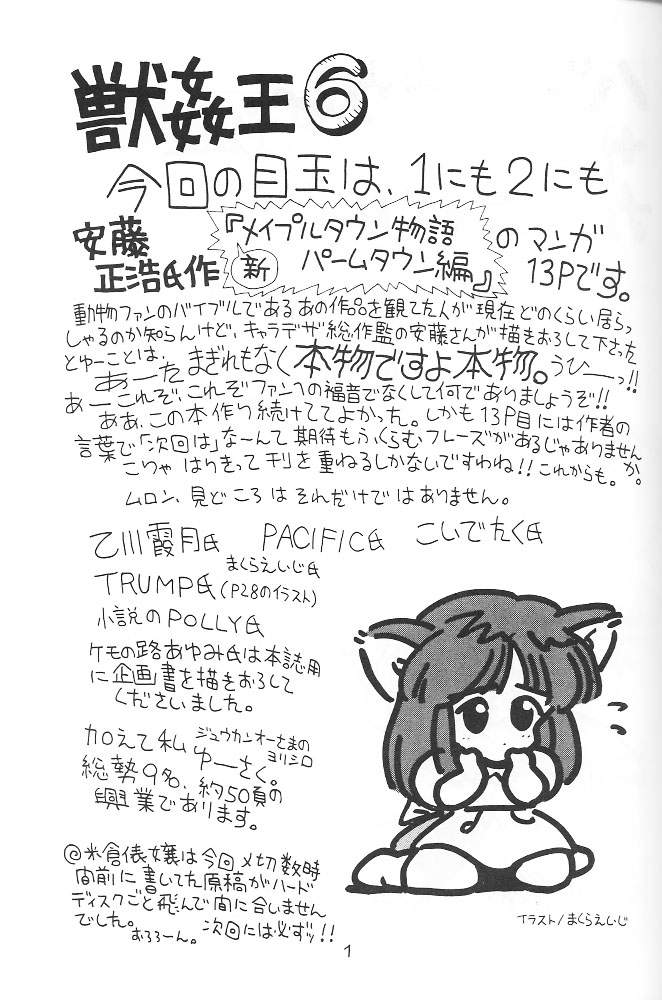 獣姦王6
今回の目玉は、1にも2にも
安藤正浩氏作
『新メイプルタウン物語
パームタウン編』
のマンガ
13Pです。
動物ファンのバイブルであるあの作品を観てた人が現在どのくらい居らっ
しゃるのか知らんけど、キャラデザ総作監の安藤さんが描きおろして下さった
とゆーことは、まぎれもなく本物ですよ本物。うひーっ!!
あーた
あーこれぞ、これぞファンへの福音でなくして何でありましょうぞ!!
ああ、この本作り続けててよかった。しかも13P目には作者の
言葉で「次回は」な〜んて期待もふくらむフレーズがあるじゃありません
か。
こりゃはりきって刊を重ねるしかないですわね!!これからも。
ムロン、見どころはそれだけではありません。
乙川霞月氏 PACIFIC氏 こいでたく氏
まくらえいじ氏
TRUMP氏(P28のイラスト)
小説のPOLLY氏
ケモの路あゆみ氏は本誌用
に企画書を描きおろして
くださいました。
加えて私 ジュウカンオーさまの
ヨリシロ
ゆーさく。
総勢9名、約50頁の
興業であります。
@米倉俵嬢は今回〆切数時
間前に書いてた原稿がハード
ディスクごと飛んで間に合いません
でした。
おろろーん。 次回には必ずッ!!
イラスト/まくらえいじ
1